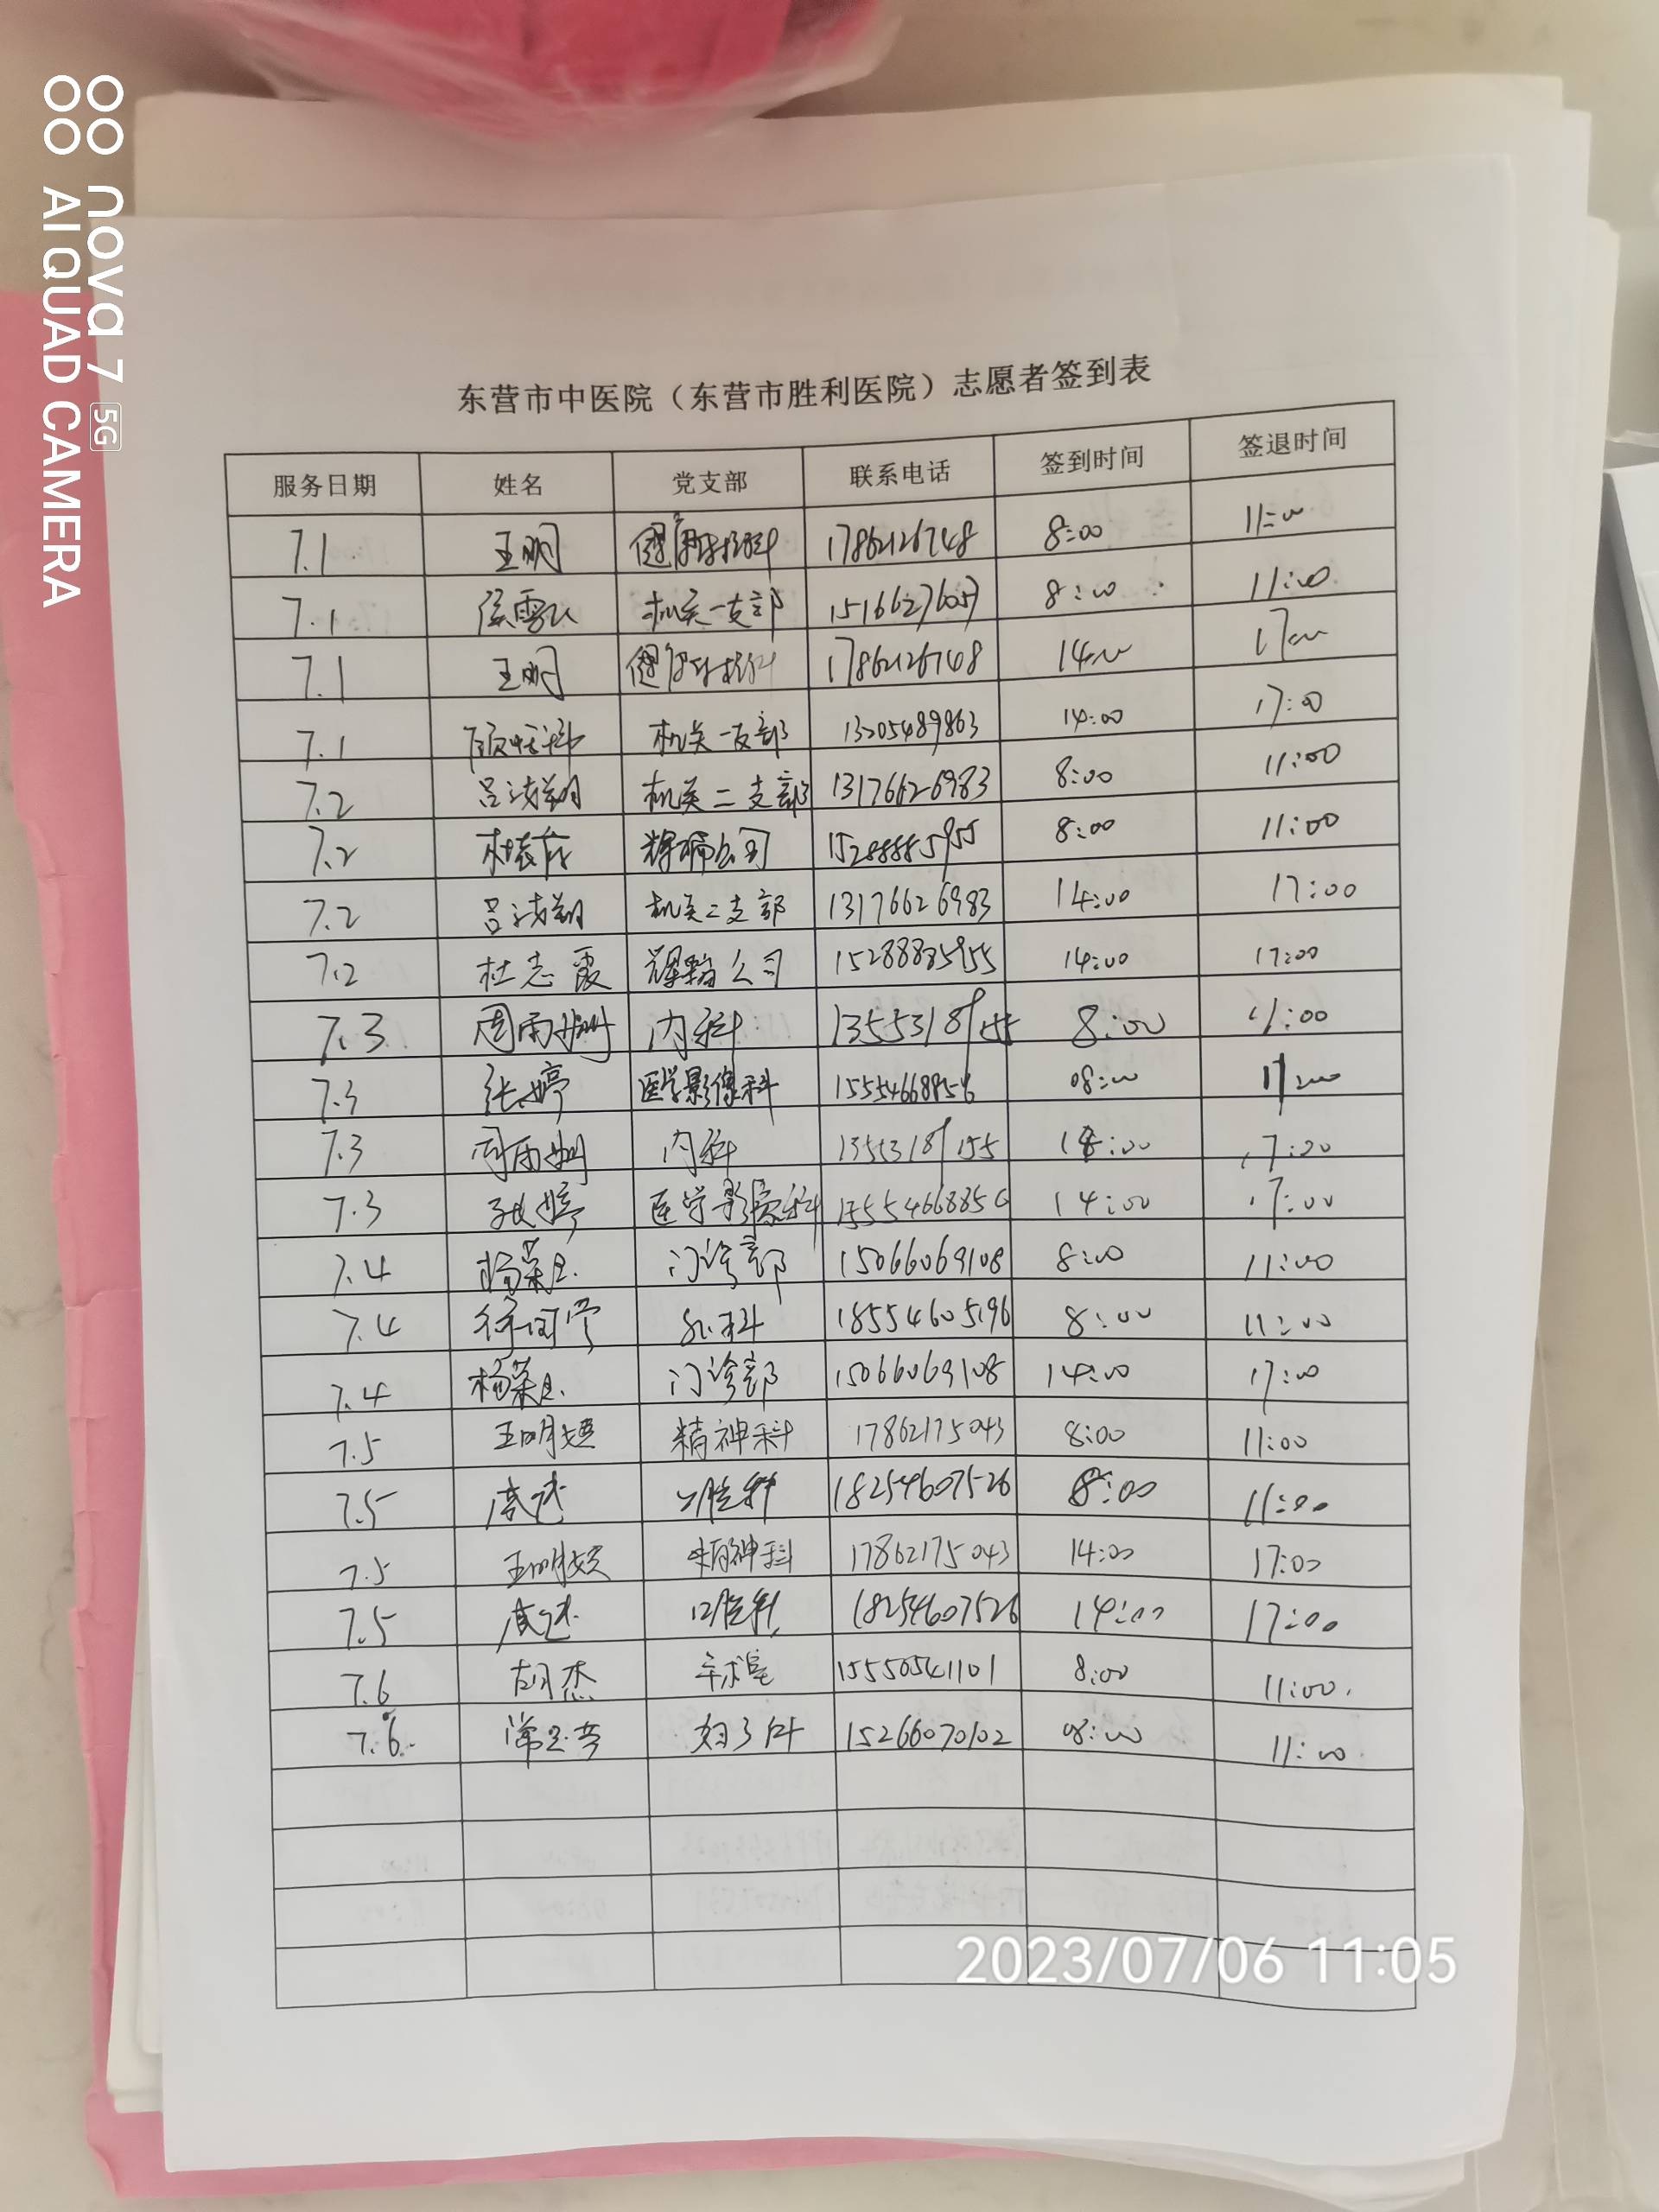 nova 7 5G
AI QUAD CAMERA
东营市中医院（东营市胜利医院）志愿者签到表
服务日期 姓名 党支部 联系电话 签到时间 签退时间
7.1 王鹏 17862126748 8:00 11:00
7.1 机关一支部 15166276057 8:00 11:00
7.1 王鹏 17862126748 14:00 17:00
7.1 机关一支部 13205489863 14:00 17:00
7.2 机关二支部 13176626983 8:00 11:00
7.2 公司 15288885955 8:00 11:00
7.2 机关二支部 13176626983 14:00 17:00
7.2 杜志霞 公司 15288885955 14:00 17:00
7.3 周雨姗 内科 8:00 11:00
7.3 张婷 医学影像科 08:00 11:00
7.3 周雨姗 内科 17:00
7.3 张婷 医学影像科 14:00 17:00
7.4 门诊部 15066069108 8:00 11:00
7.4 外科 18554605196 8:00 11:00
7.4 门诊部 15066069108 14:00 17:00
7.5 精神科 17862175043 8:00 11:00
7.5 口腔科 18254607526 8:00 11:00
7.5 精神科 17862175043 14:00 17:00
7.5 口腔科 18254607526 14:00 17:00
7.6 胡杰 手术室 15550541101 8:00 11:00
7.6 15266070102 08:00 11:00
2023/07/06 11:05